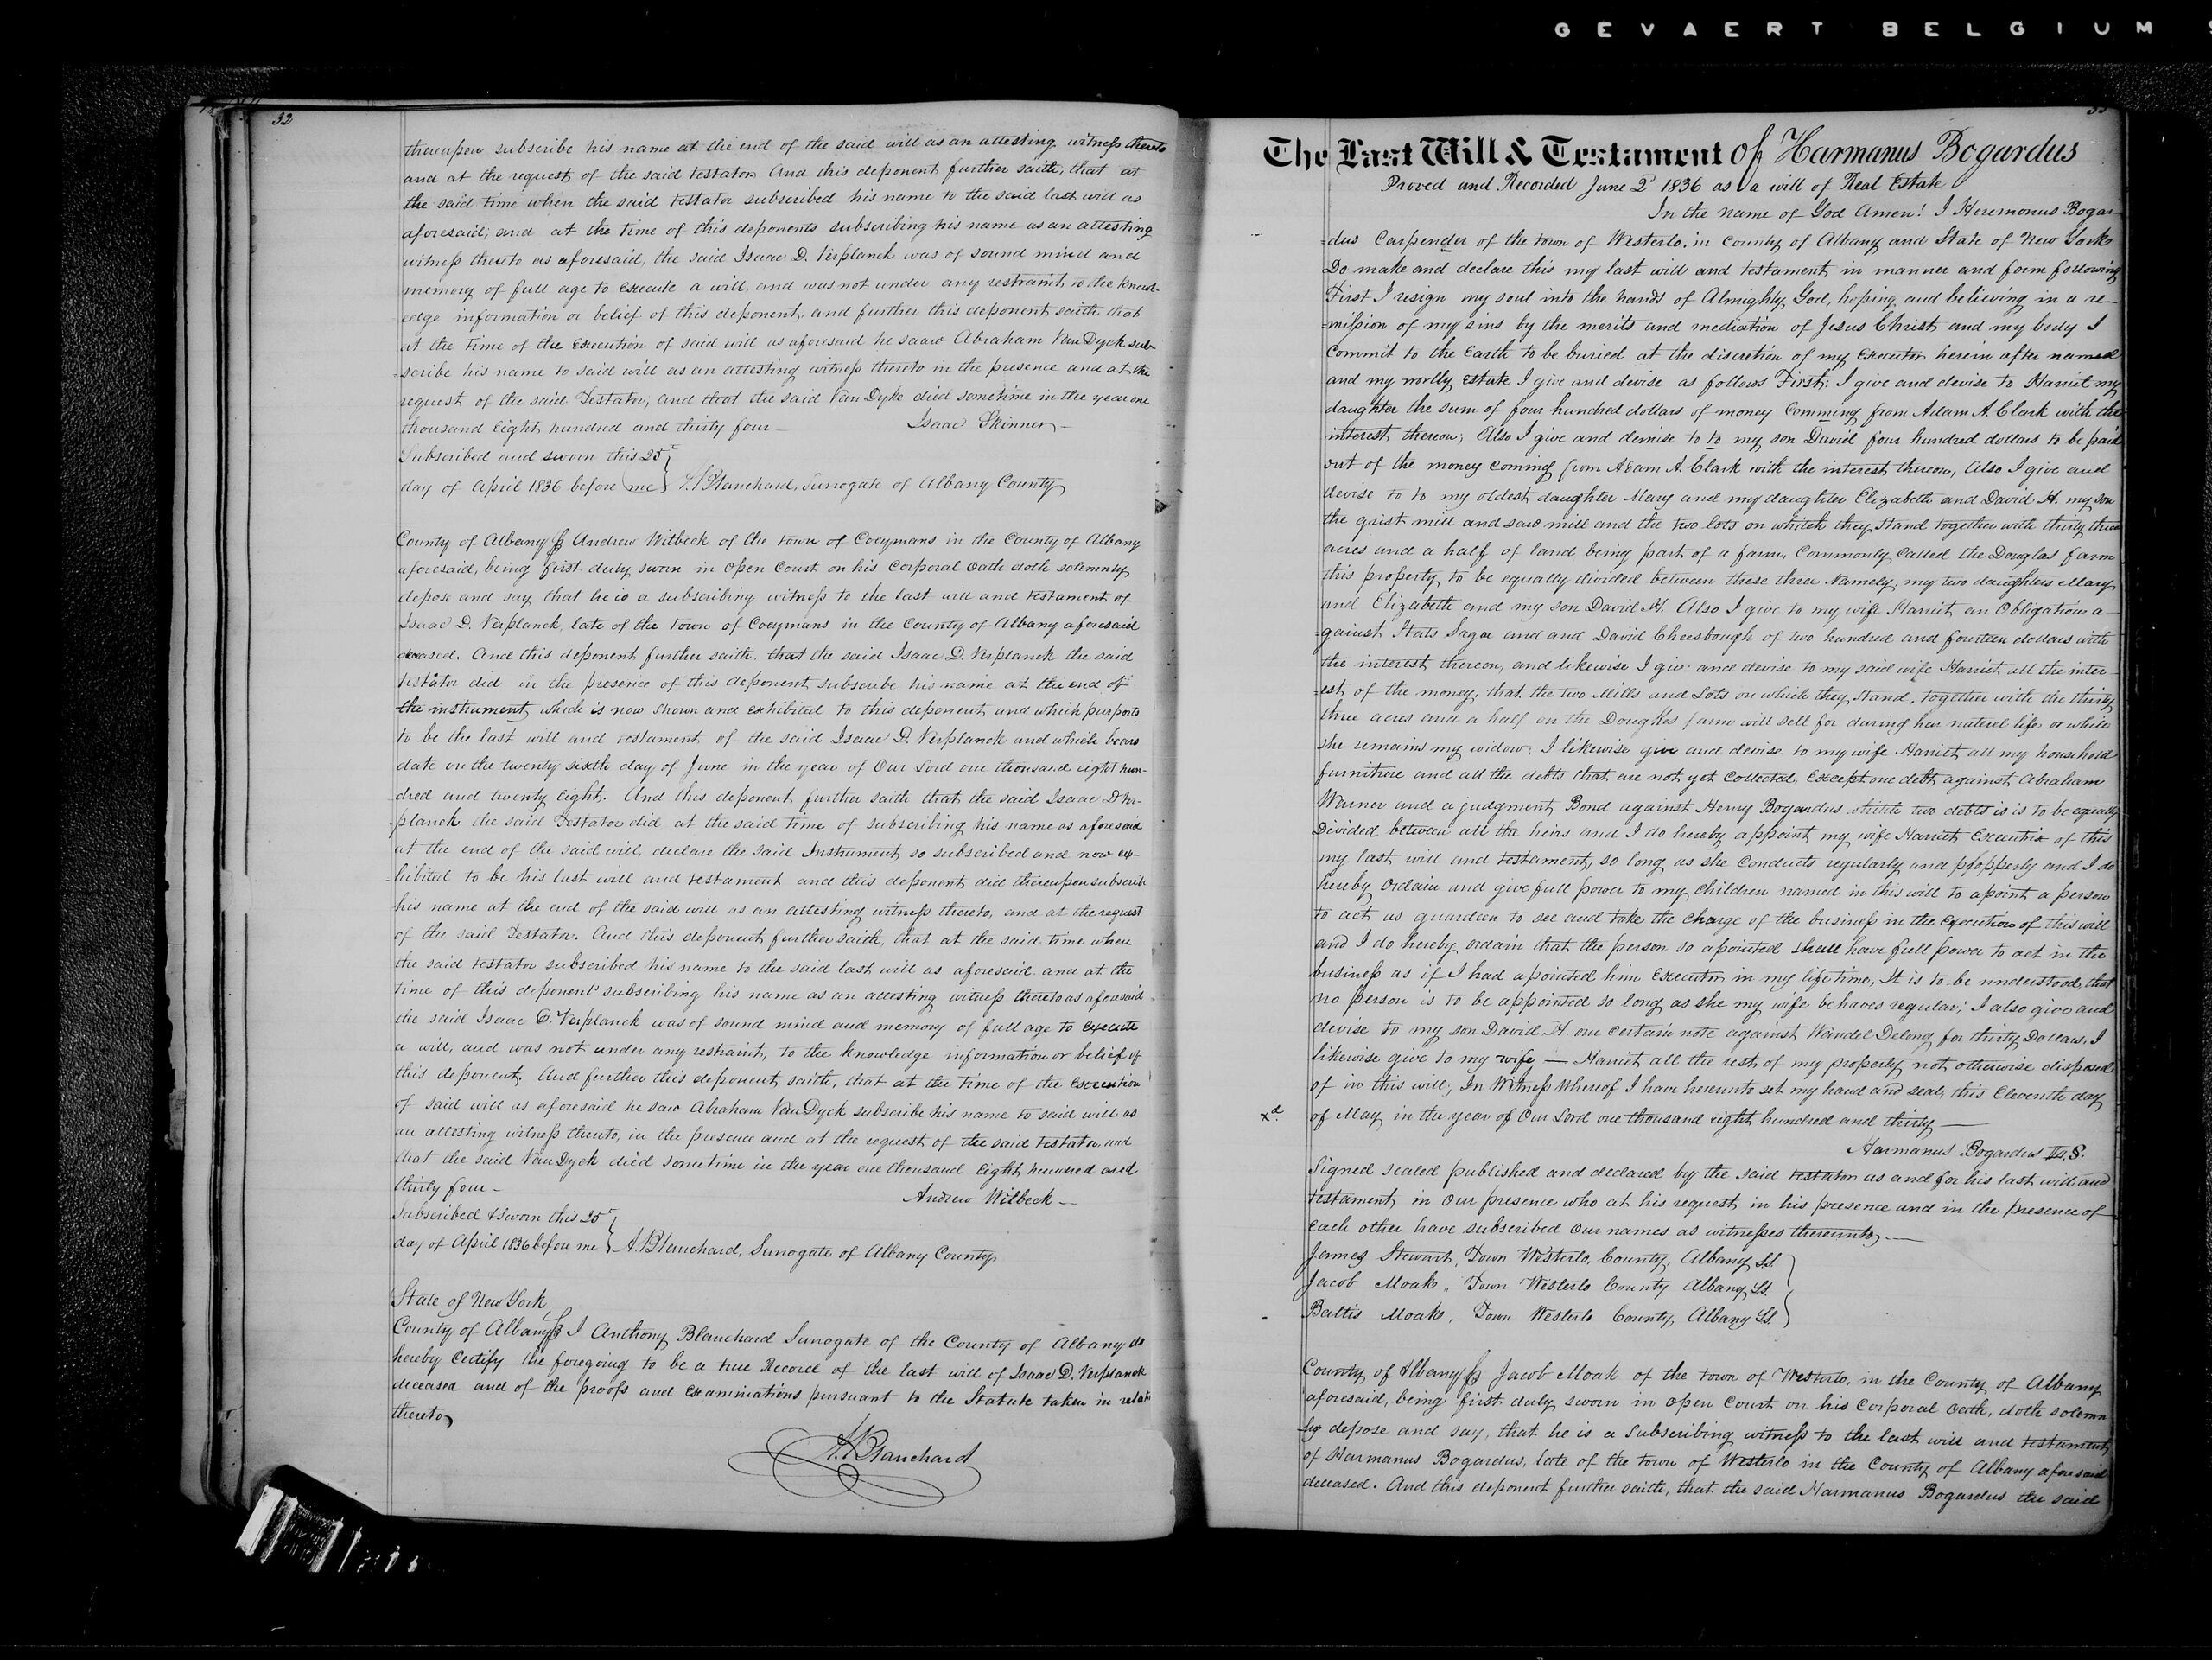 GEVAERT BELGIUM
32
thereupon subscribe his name at the end of the said will as an attesting witness thereto
and at the request of the said testator. And this deponent further saith, that at
the said time when the said testator subscribed his name to the said last will as
aforesaid; and at the time of this deponents subscribing his name as an attesting
witness thereto as aforesaid, the said Isaac D. Verplanck was of sound mind and
memory of full age to execute a will, and was not under any restraint to the knowl-
edge information or belief of this deponent, and further this deponent saith that
at the time of the execution of said will as aforesaid he saw Abraham Van Dyck sub-
=scribe his name to said will as an attesting witness thereto in the presence and at the
request of the said Testator, and that the said Van Dyke died sometime in the year one
thousand Eight hundred and thirty four — Isaac Skinner —
Subscribed and sworn this 25th
day of April 1836 before me } A. Blanchard, Surrogate of Albany County
County of Albany ss Andrew Witbeck of the town of Coeymans in the County of Albany
aforesaid, being first duly sworn in Open Court on his Corporal Oath doth solemnly
depose and say that he is a subscribing witness to the last will and testament of
Isaac D. Verplanck, late of the Town of Coeymans in the County of Albany aforesaid
deceased. And this deponent further saith, that the said Isaac D. Verplanck the said
testator did in the presence of this deponent subscribe his name at the end of
the instrument, which is now shown and exhibited to this deponent and which purports
to be the last will and testament of the said Isaac D. Verplanck and which bears
date on the twenty sixth day of June in the year of Our Lord one thousand eight hun-
dred and twenty Eight. And this deponent further saith that the said Isaac D Ver-
planck the said Testator did at the said time of subscribing his name as aforesaid
at the end of the said will, declare the said Instrument so subscribed and now ex-
hibited to be his last will and testament and this deponent did thereupon subscribe
his name at the end of the said will as an attesting witness thereto, and at the request
of the said Testator. And this deponent further saith, that at the said time when
the said testator subscribed his name to the said last will as aforesaid and at the
time of this deponent subscribing his name as an attesting witness thereto as aforesaid
the said Isaac D. Verplanck was of sound mind and memory of full age to execute
a will, and was not under any restraint, to the knowledge information or belief of
this deponent. And further this deponent saith, that at the time of the execution
of said will as aforesaid he saw Abraham Van Dyck subscribe his name to said will as
an attesting witness thereto, in the presence and at the request of the said testator, and
that the said Van Dyck died sometime in the year one thousand Eight hundred and
thirty four — Andrew Witbeck —
Subscribed & sworn this 25th
day of April 1836 before me } A. Blanchard, Surrogate of Albany County
State of New York
County of Albany ss I Anthony Blanchard Surrogate of the County of Albany do
hereby Certify the foregoing to be a true Record of the last will of Isaac D. Verplanck
deceased and of the proofs and Examinations pursuant to the Statute taken in relat
thereto
A. Blanchard
The Last Will & Testament of Harmanus Bogardus
Proved and Recorded June 2d 1836 as a will of Real Estate
In the name of God Amen! I Heremonus Bogar-
=dus Carpender of the town of Westerlo, in county of Albany and State of New York
Do make and declare this my last will and testament in manner and form following
First I resign my soul into the hands of Almighty God, hoping and believing in a re-
=mission of my sins by the merits and mediation of Jesus Christ and my body I
commit to the Earth to be buried at the discretion of my Executor herein after named
and my worlly Estate I give and devise as follows First: I give and devise to Harriet my
daughter the sum of four hundred dollars of money Comming from Adam A. Clark with the
interest thereon; Also I give and demise to to my son David four hundred dollars to be paid
out of the money coming from Adam A. Clark with the interest thereon, Also I give and
devise to to my oldest daughter Mary and my daughter Elizabeth and David H. my son
the grist mill and saw mill and the two lots on whitch they stand together with thirty three
acres and a half of land being part of a farm, Commonly Called the Douglas farm
this property to be equally divided between these three Namely, my two daughters Mary
and Elizabeth and my son David H. Also I give to my wife Harriet an Obligation a-
=gainst Stats Sager and and David Cheesbough of two hundred and fourteen dollars with
the interest thereon, and likewise I give and devise to my said wife Harriet all the inter-
=est of the money, that the two Mills and Lots on which they stand, together with the thirty
three acres and a half on the Douglas farm will sell for during her naturel life or while
she remains my widow; I likewise give and devise to my wife Harriet all my household
furniture and all the debts that are not yet Collected Except one debt against Abraham
Warner and a judgment Bond against Henry Bogardus which two debts is is to be equally
Divided between all the heirs and I do hereby appoint my wife Harriet Executrix of this
my last will and testament, so long as she Conducts regularly and propperly and I do
hereby Ordain and give full power to my Children named in this will to apoint a person
to act as guardeen to see and take the charge of the business in the Execution of this will
and I do hereby ordain that the person so apointed shall have full power to act in the
business as if I had apointed him Executor in my life time, It is to be understood, that
no person is to be appointed so long as she my wife behaves regular; I also give and
devise to my son David H. one certain note against Wandel Delong for thirty Dollars, I
likewise give to my wife — Harriet all the rest of my property not otherwise disposed
of in this will; In Witness Whereof I have hereunto set my hand and seal, this Eleventh day
xd. of May in the year of Our Lord one thousand eight hundred and thirty —
Harmanus Bogardus L.S.
Signed sealed published and declared by the said testator as and for his last will and
testament in our presence who at his request in his presence and in the presence of
each other have subscribed our names as witnesses thereunto, —
James Stewart, Town Westerlo, County, Albany Ls.
Jacob Moak, Town Westerlo County Albany Ls.
Baltis Moak, Town Westerlo County, Albany Ls.
County of Albany ss Jacob Moak of the town of Westerlo, in the County of Albany
aforesaid, being first duly sworn in open Court on his Corporal Oath, doth solemn
=ly depose and say, that he is a Subscribing witness to the last will and testament
of Harmanus Bogardus, late of the town of Westerlo in the County of Albany aforesaid
deceased. And this deponent further saith, that the said Harmanus Bogardus the said